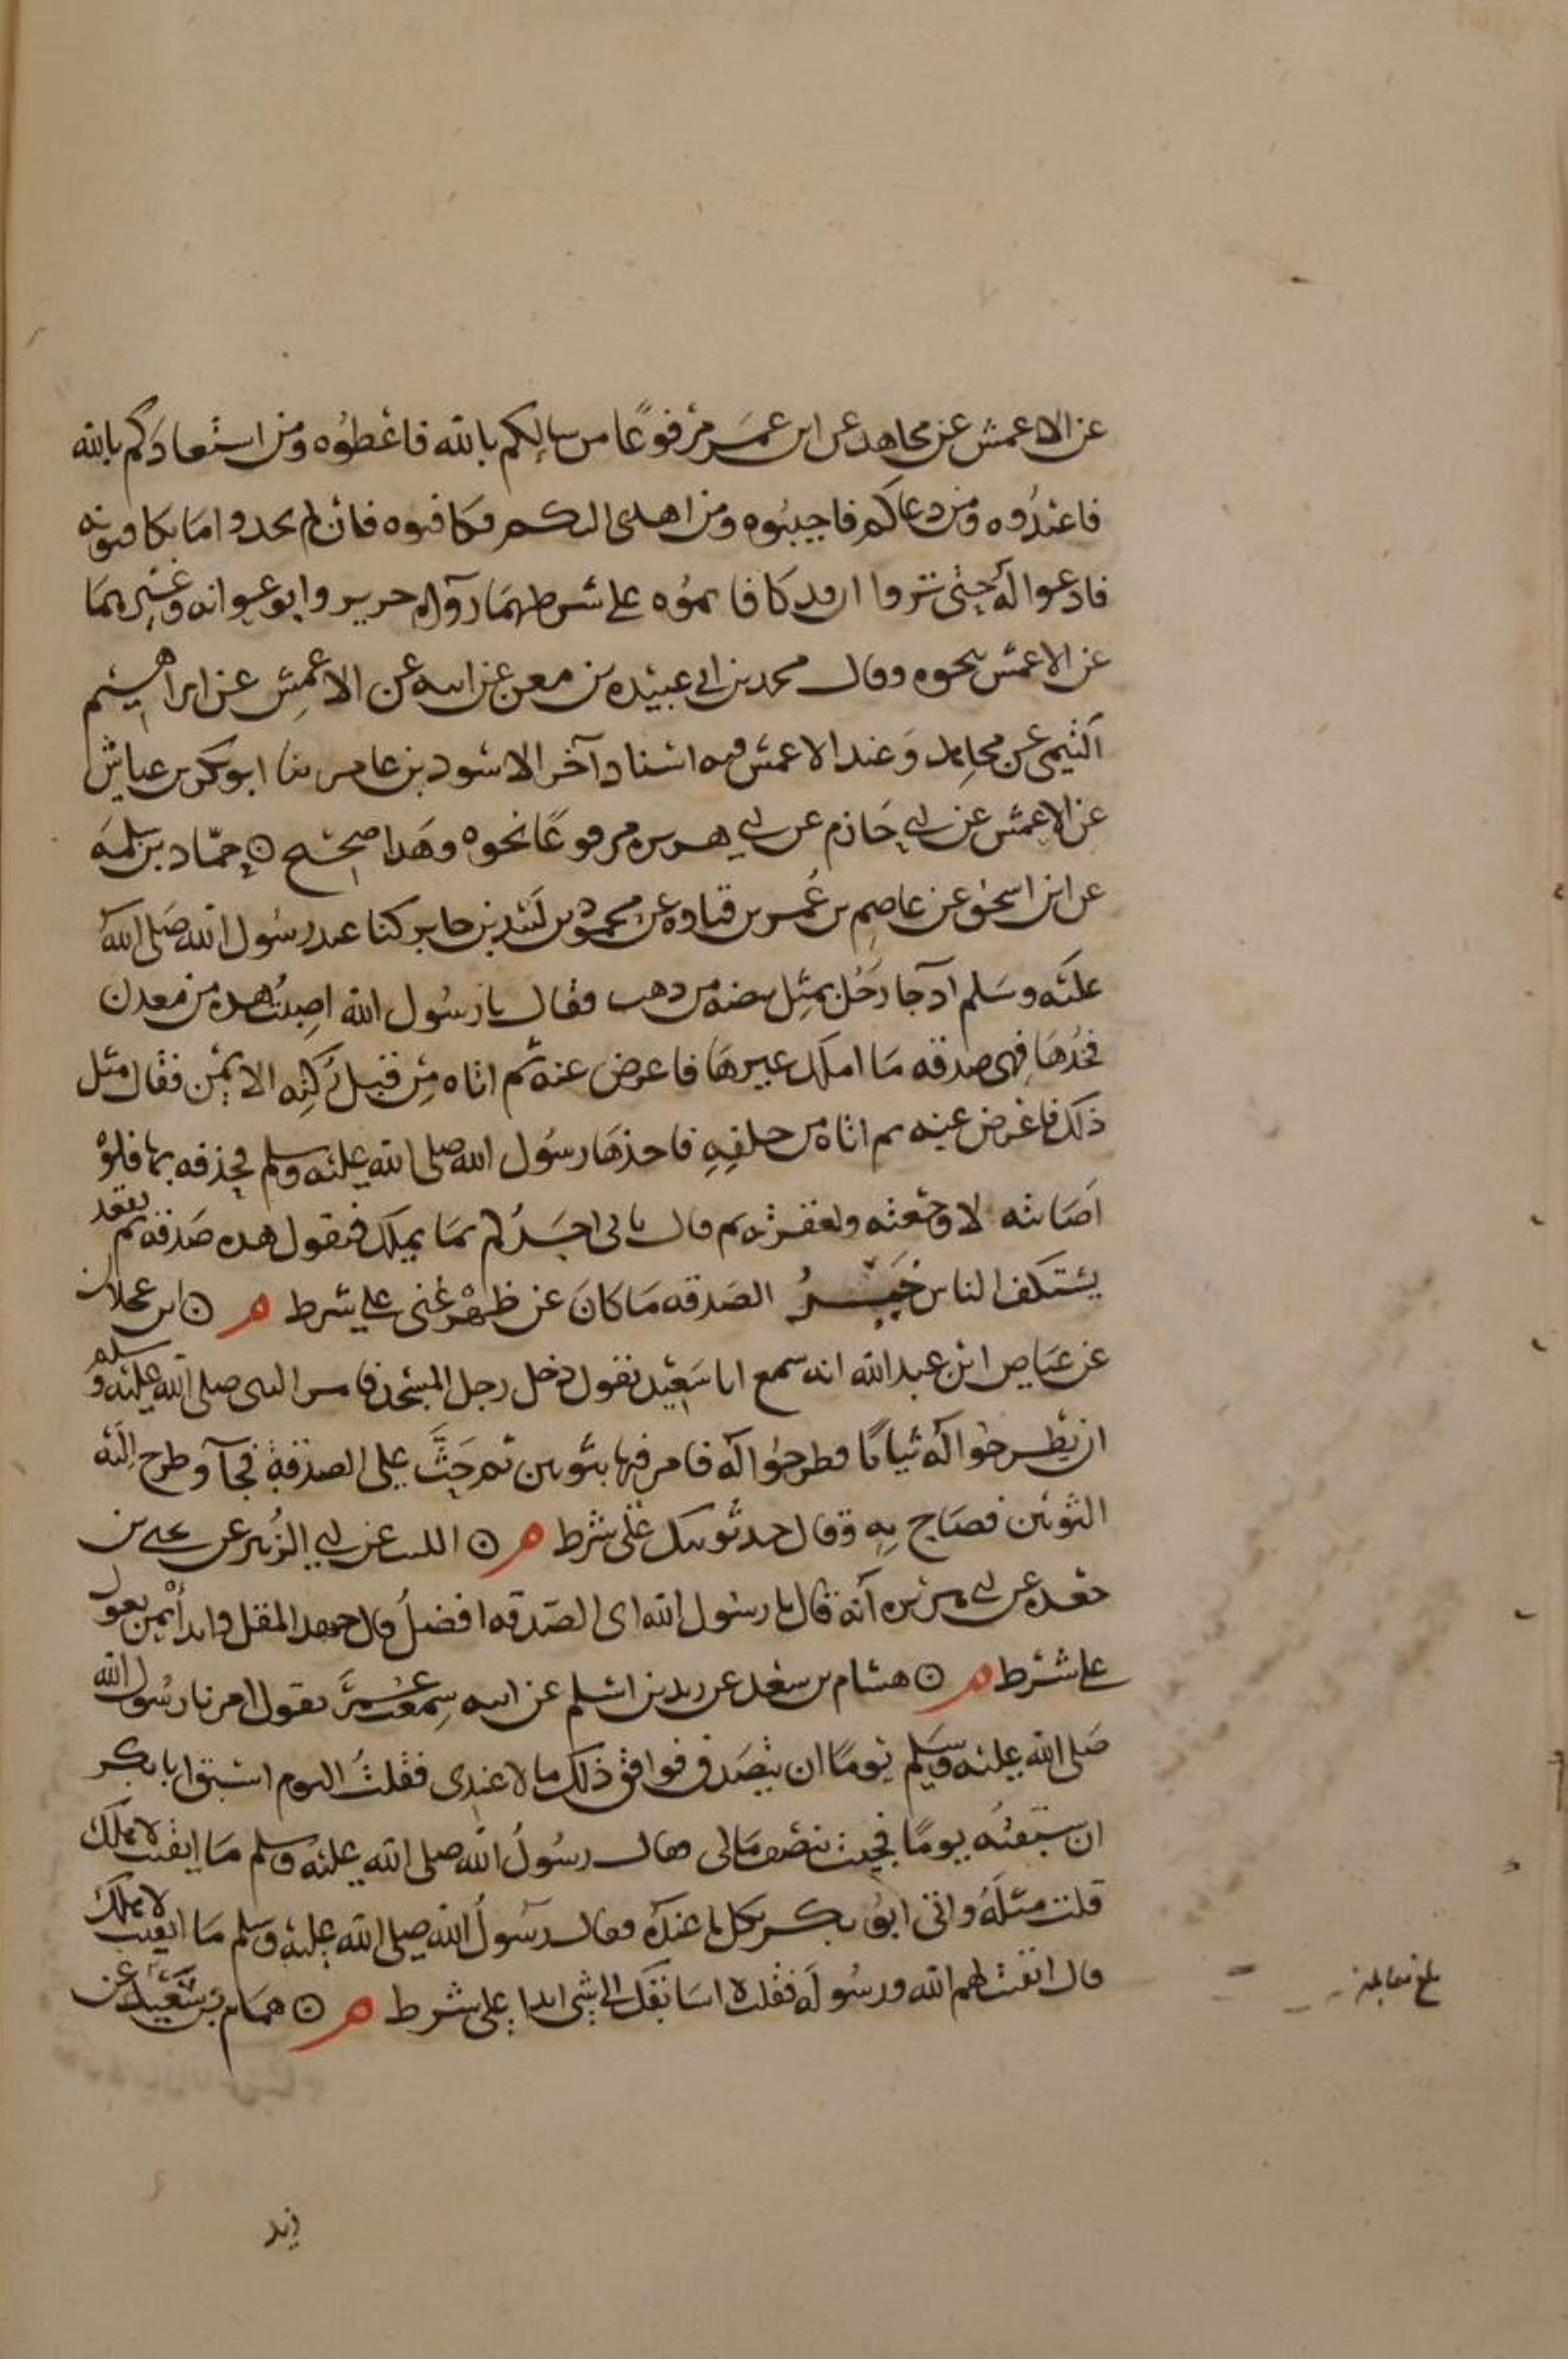 عن الاعمش عن مجاهد عن ابن عمر مرفوعًا من سالكم بالله فاعطوه ومن استعاذكم بالله
فاعيذوه ومن دعاكم فاجيبوه ومن اهدى اليكم فكافوه فان لم تجدوا ما تكافونه
فادعوا له حتى تروا ان قد كافاتموه على شرطهما رواه جرير وابو عوانه وغيرهما
عن الاعمش نحوه وقال محمد بن ابي عبيده بن معن عن ابيه عن الاعمش عن ابراهيم
التيمي عن مجاهد وعند الاعمش فيه اسناد آخر الاسود بن عامر ثنا ابو بكر بن عياش
عن الاعمش عن ابي حازم عن ابي هريره مرفوعًا نحوه وهذا صحيح ۞ حماد بن سلمه
عن ابن اسحق عن عاصم بن عمر بن قتاده عن محمود بن لبيد بن جابر كنا عند رسول الله صلى الله
عليه وسلم اذ جا رجل بمثل بيضه من ذهب فقال يا رسول الله اصبت هذه من معدن
فخذها فهي صدقه ما املك غيرها فاعرض عنه ثم اتاه من قبل ركنه الايمن فقال مثل
ذلك فاعرض عنه ثم اتاه من خلفه فاخذها رسول الله صلى الله عليه وسلم فحذفه بها فلو
اصابته لاوجعته ولعقرته ثم قال ياتى احدكم بما يملك فيقول هذه صدقه ثم يقعد
يستكف الناس خير الصدقه ما كان عن ظهر غنى على شرط م ۞ ابن عجلان
عن عياض ابن عبد الله انه سمع ابا سعيد يقول دخل رجل المسجد فامر النبى صلى الله عليه وسلم
ان يطرحوا له ثيابًا فطرحوا له فامر فيها بثوبين ثم حث على الصدقة فجآ وطرح اليه
الثوبين فصاح به وقال خذ ثوبك على شرط م ۞ الليث عن ابي الزبير عن يحيى بن
جعده عن ابي هريره انه قال يا رسول الله اى الصدقه افضل قال جهد المقل وابدأ بمن تعول
على شرط م ۞ هشام بن سعد عن زيد بن اسلم عن ابيه سمعت عمر يقول امرنا رسول الله
صلى الله عليه وسلم يومًا ان نتصدق فوافق ذلك مالا عندى فقلت اليوم اسبق ابا بكر
ان سبقته يومًا فجيت بنصف مالى فقال رسول الله صلى الله عليه وسلم ما ابقيت لاهلك
قلت مثله واتى ابو بكر بكل ما عنده فقال رسول الله صلى الله عليه وسلم ما ابقيت لاهلك
قال ابقيت لهم الله ورسوله فقلت لا اسابقك الى شى ابدا على شرط م ۞ همام بن سعيد عن
بلغ مقابلة